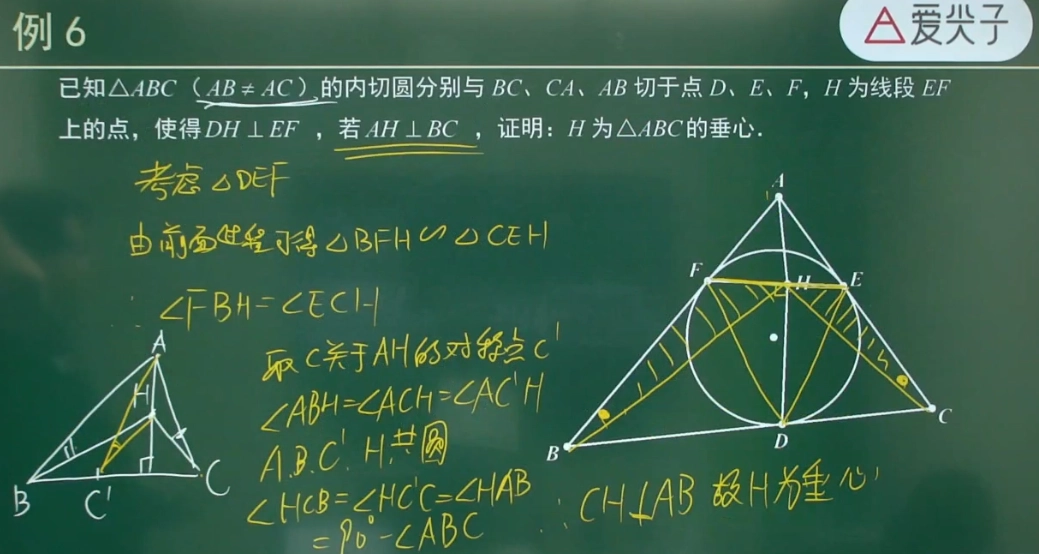 例 6
爱尖子
已知△ABC（AB≠AC）的内切圆分别与 BC、CA、AB 切于点 D、E、F，H 为线段 EF
上的点，使得DH⊥EF ，若AH⊥BC ，证明：H 为△ABC的垂心．
考虑△DEF
由前面过程可得△BFH∽△CEH
∴∠FBH=∠ECH
取C关于AH的对称点C'
∠ABH=∠ACH=∠AC'H
A.B.C'.H共圆
∠HCB=∠HC'C=∠HAB
=90°-∠ABC
∴CH⊥AB 故H为垂心
A
F
H
E
B
D
C
A
H
B
C'
C